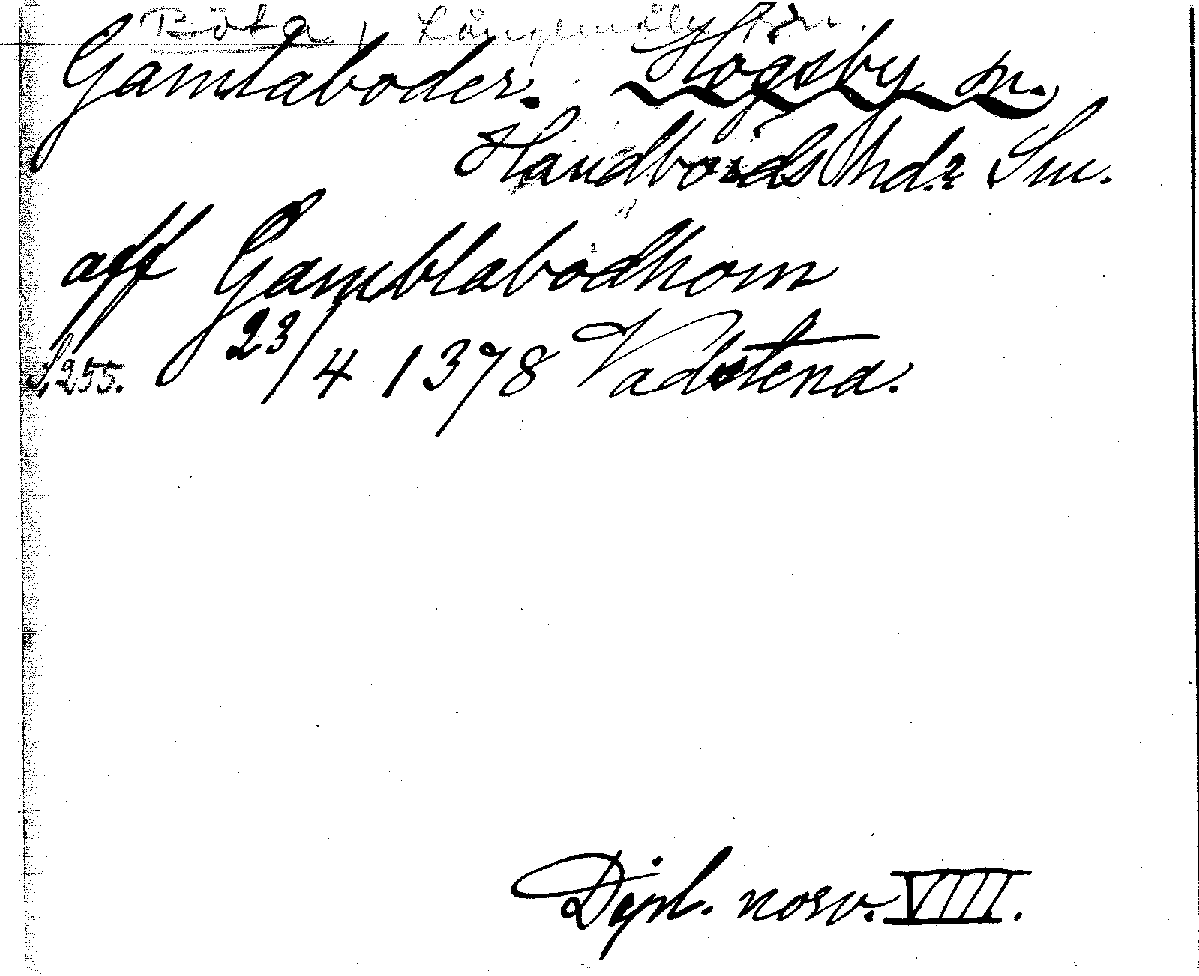 Böta, Långemåla sn.
Gamlaboder. Högsby sn.
Handbörds hd. Sm.
aff Gamblabodhom
S. 255. 23/4 1378 Vadstena.
Dipl. norv. VIII.